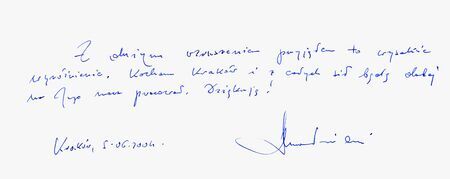 Z dużym wzruszeniem przyjąłem to wysokie
wyróżnienie. Kocham Kraków i z całych sił będę dalej
na Jego rzecz pracował. Dziękuję!
Kraków, 5.06.2004.